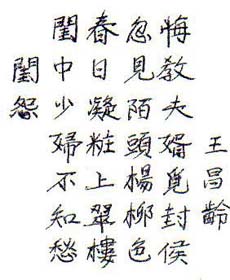 閨怨
閨中少婦不知愁
春日凝粧上翠樓
忽見陌頭楊柳色
悔教夫婿覓封侯
王昌齡